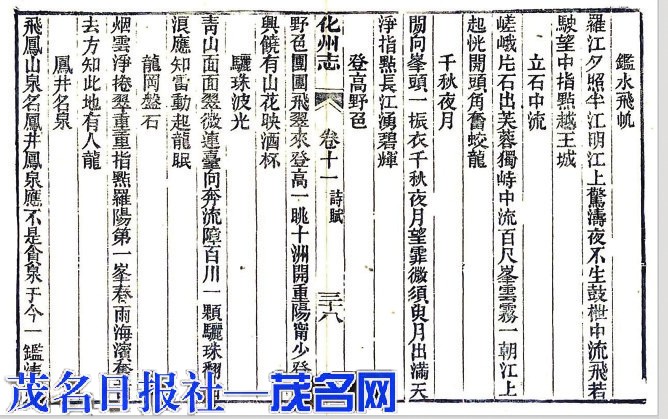 鑑水飛帆
羅江夕照半江明江上驚濤夜不生鼓枻中流飛若
駛望中指點越王城
立石中流
嵯峨片石出芙蓉獨峙中流百尺峯雲霧一朝江上
起恍開頭角奮蛟龍
千秋夜月
閒向峯頭一振衣千秋夜月望霏微須臾月出滿天
淨指點長江湧碧輝
登高野色
化州志
卷十一
詩賦
三十八
野色團團飛翠來登高一眺十洲開重陽甯少登
興饒有山花映酒杯
驪珠波光
靑山面面翠微連臺向奔流障百川一顆驪珠翻
浪應知雷動起龍眠
龍岡盤石
烟雲淨捲翠重重指點羅陽第一峯春雨海濱
去方知此地有人龍
鳳井名泉
飛鳳山泉名鳳井鳳泉應不是貪泉于今一鑑淸
茂名日报社—茂名网